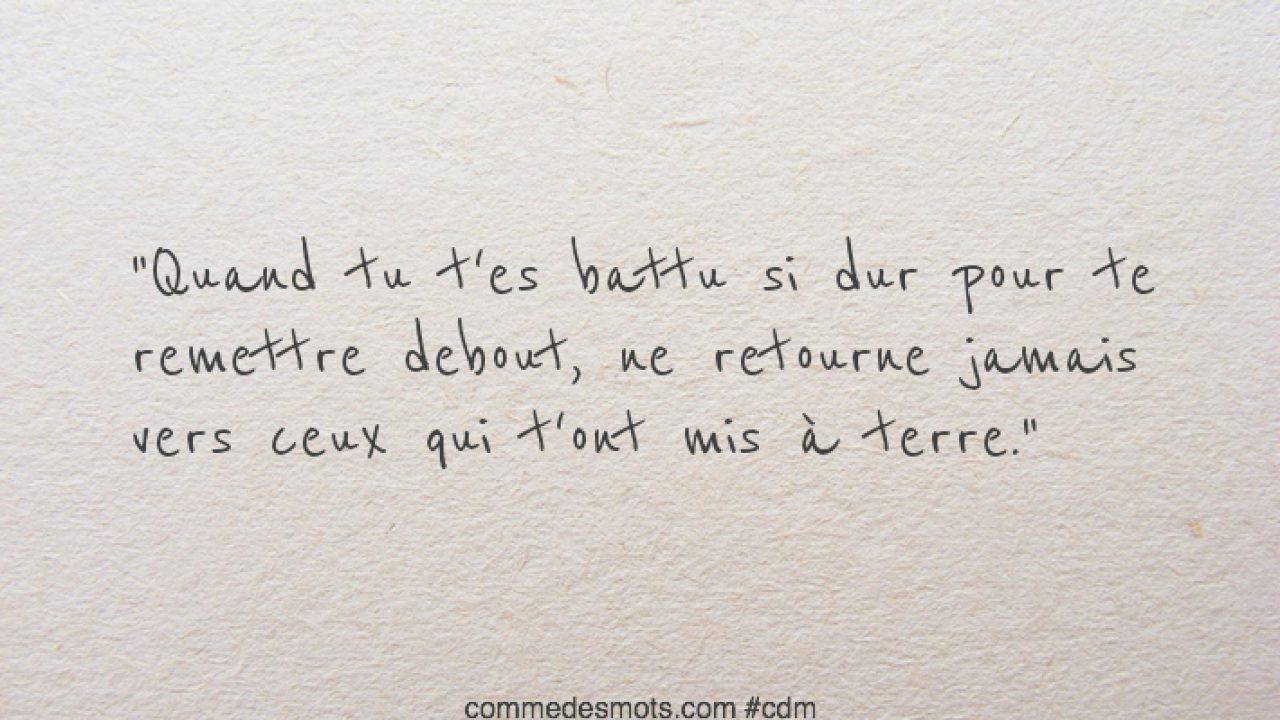 "Quand tu t'es battu si dur pour te
remettre debout, ne retourne jamais
vers ceux qui t'ont mis à terre."
commedesmots.com #cdm